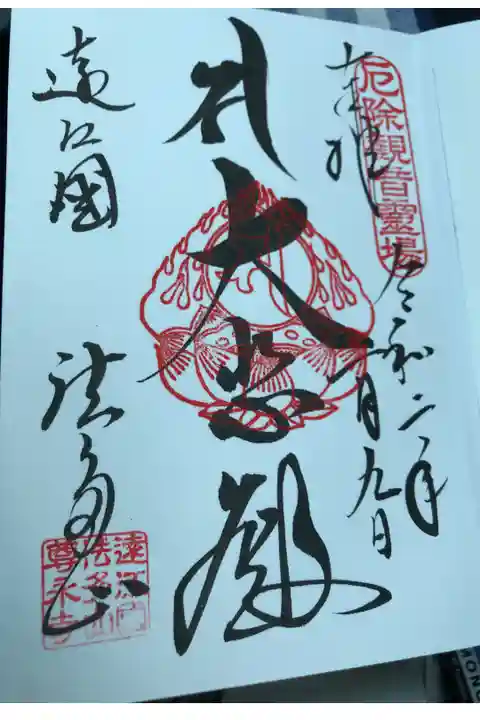 厄除觀音靈場
奉拝
令和二年
月九日
大悲殿
遠江國
法多山
遠江國
法多山
尊永寺
MONO